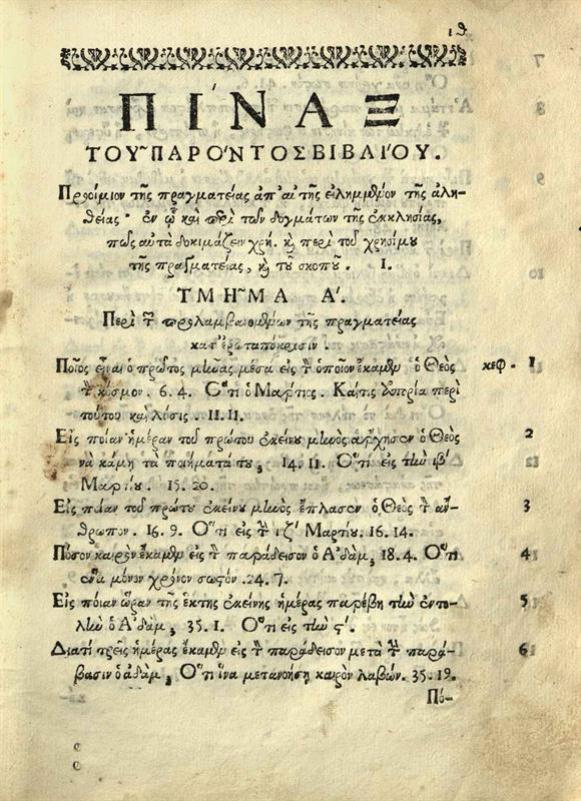 ιθ
ΠΙ´ΝΑΞ
ΤΟΥ῀ ΠΑΡΟ´ΝΤΟΣ ΒΙΒΛΙ´ΟΥ.
Προοίμιον τῆς πραγματείας
τῆς ἀλη-
θείας· ἐν ᾧ καὶ περὶ τῶν δογμάτων τῆς ἐκκλησίας,
πῶς αὐτὰ δοκιμάζειν χρή. κ̀ περὶ τοῦ χρησίμου
τῆς πραγματείας, κ̀ τοῦ σκοποῦ. 1.
ΤΜΗ῀ΜΑ Α´.
Περὶ τ̃ προλαμβανομένων τῆς πραγματείας
κατ' ἐρωταπόκρισιν.
Ποῖος εἶναι ὁ πρῶτος μῆνας μέσα εἰς τὸ ὁποῖον ἔκαμεν ὁ Θεὸς κεφ. 1
τ̀ κόσμον. 6. 4. Ὅτι ὁ Μάρτης. Καί τις ἀπορία περὶ
τούτου καὶ λύσις. 11. 11.
Εἰς ποίαν ἡμέραν τοῦ πρώτου ἐκείνου μηνὸς ἄρχησεν ὁ Θεὸς 2
νὰ κάμη τὰ ποιήματά του, 14. 11. Ὅτι εἰς τὴν ιβ´
Μαρτίου. 15. 20.
Εἰς ποίαν τοῦ πρώτου ἐκείνου μηνὸς ἔπλασεν ὁ Θεὸς τ̀ ἄν- 3
θρωπον. 16. 9. Ὅτι εἰς τ̀ ιζ´ Μαρτίου. 16. 14.
Πόσον καιρὸν ἔκαμεν εἰς τ̀ παράδεισον ὁ Ἀδάμ, 18. 4. Ὅτι 4
ἕνα μόνον χρόνον σωστόν. 24. 7.
Εἰς ποίαν ὥραν τῆς ἕκτης ἐκείνης ἡμέρας παρέβη τὴν ἐντο- 5
λὴν ὁ Ἀδάμ, 35. 1. Ὅτι εἰς τὴν ϛ´.
Διατί τρεῖς ἡμέρας ἔκαμεν εἰς τ̀ παράδεισον μετὰ τ̀ παρά- 6
βασιν ὁ ἀδάμ, Ὅτι ἵνα μετανοήσῃ καιρὸν λαβών. 35. 19.
Πό-